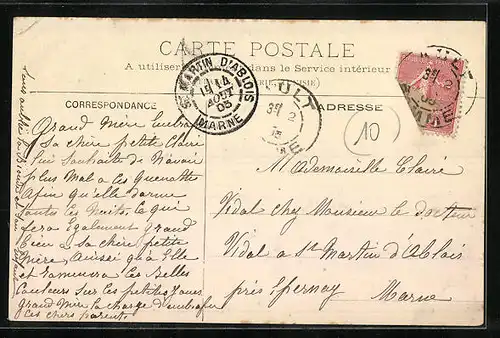 CARTE POSTALE
A utiliser dans le Service intérieur
CORRESPONDANCE
ADRESSE
ST MARTIN D'ABLOIS
14
AOUT
05
MARNE
AULT
31
2
10
Grand Mère embrasse
sa chère petite Claire
Lui Souhaite de N'avoir
plus Mal a Ces Quenottes
afin qu'elle dorme
toutes les Nuits, Ce qui
fera également Grand
bien a Sa chère petite
Mère, aussi qu'a Elle
et Ramènera les Belles
Couleurs Sur Ces petites Joues
Grand Mère la charge d'embrasser
Ces chers parents
Mademoiselle Claire
Vidal chez Monsieur le docteur
Vidal a St Martin d'Ablois
près Epernay
Marne